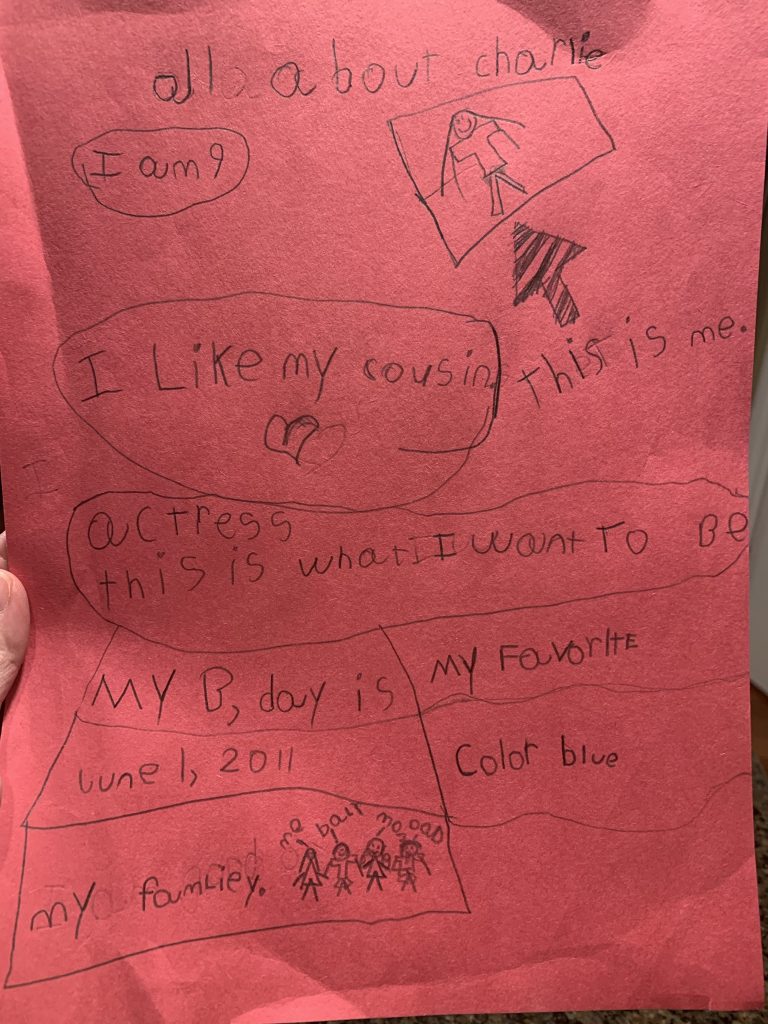 all about charlie
I am 9
I Like my cousin
this is me.
actress
this is what I want To Be
MY B,day is
June 1, 2011
MY FavorITE
Color blue
my famliey.
me
mom
DAD